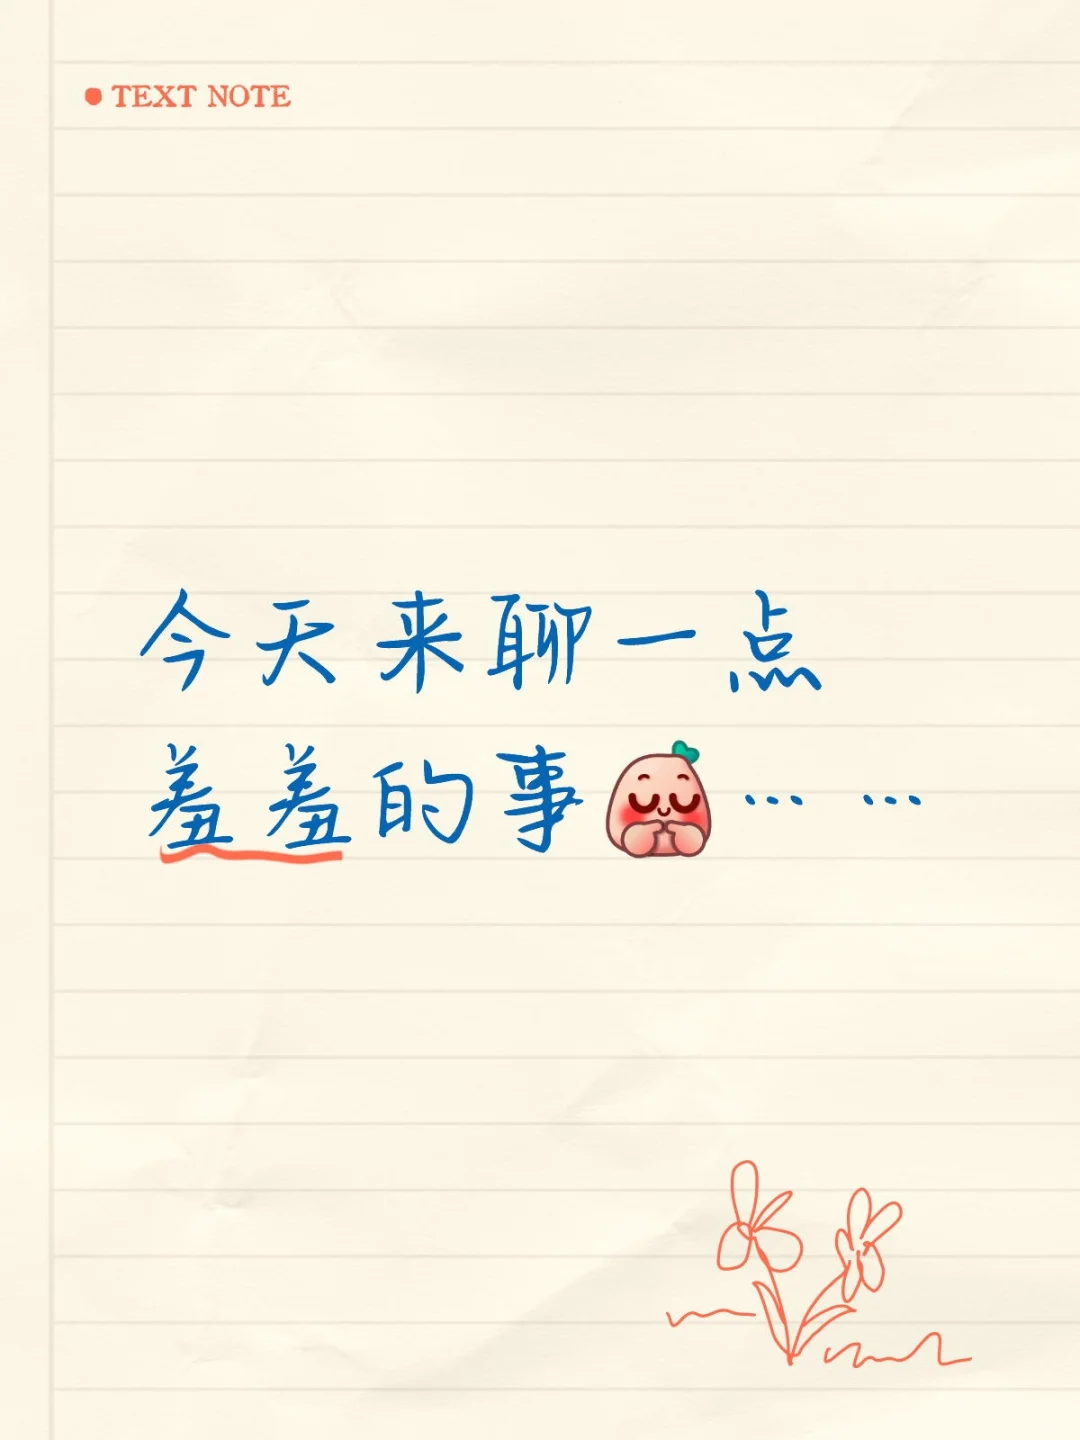 TEXT NOTE
今天来聊一点
羞羞的事…  …